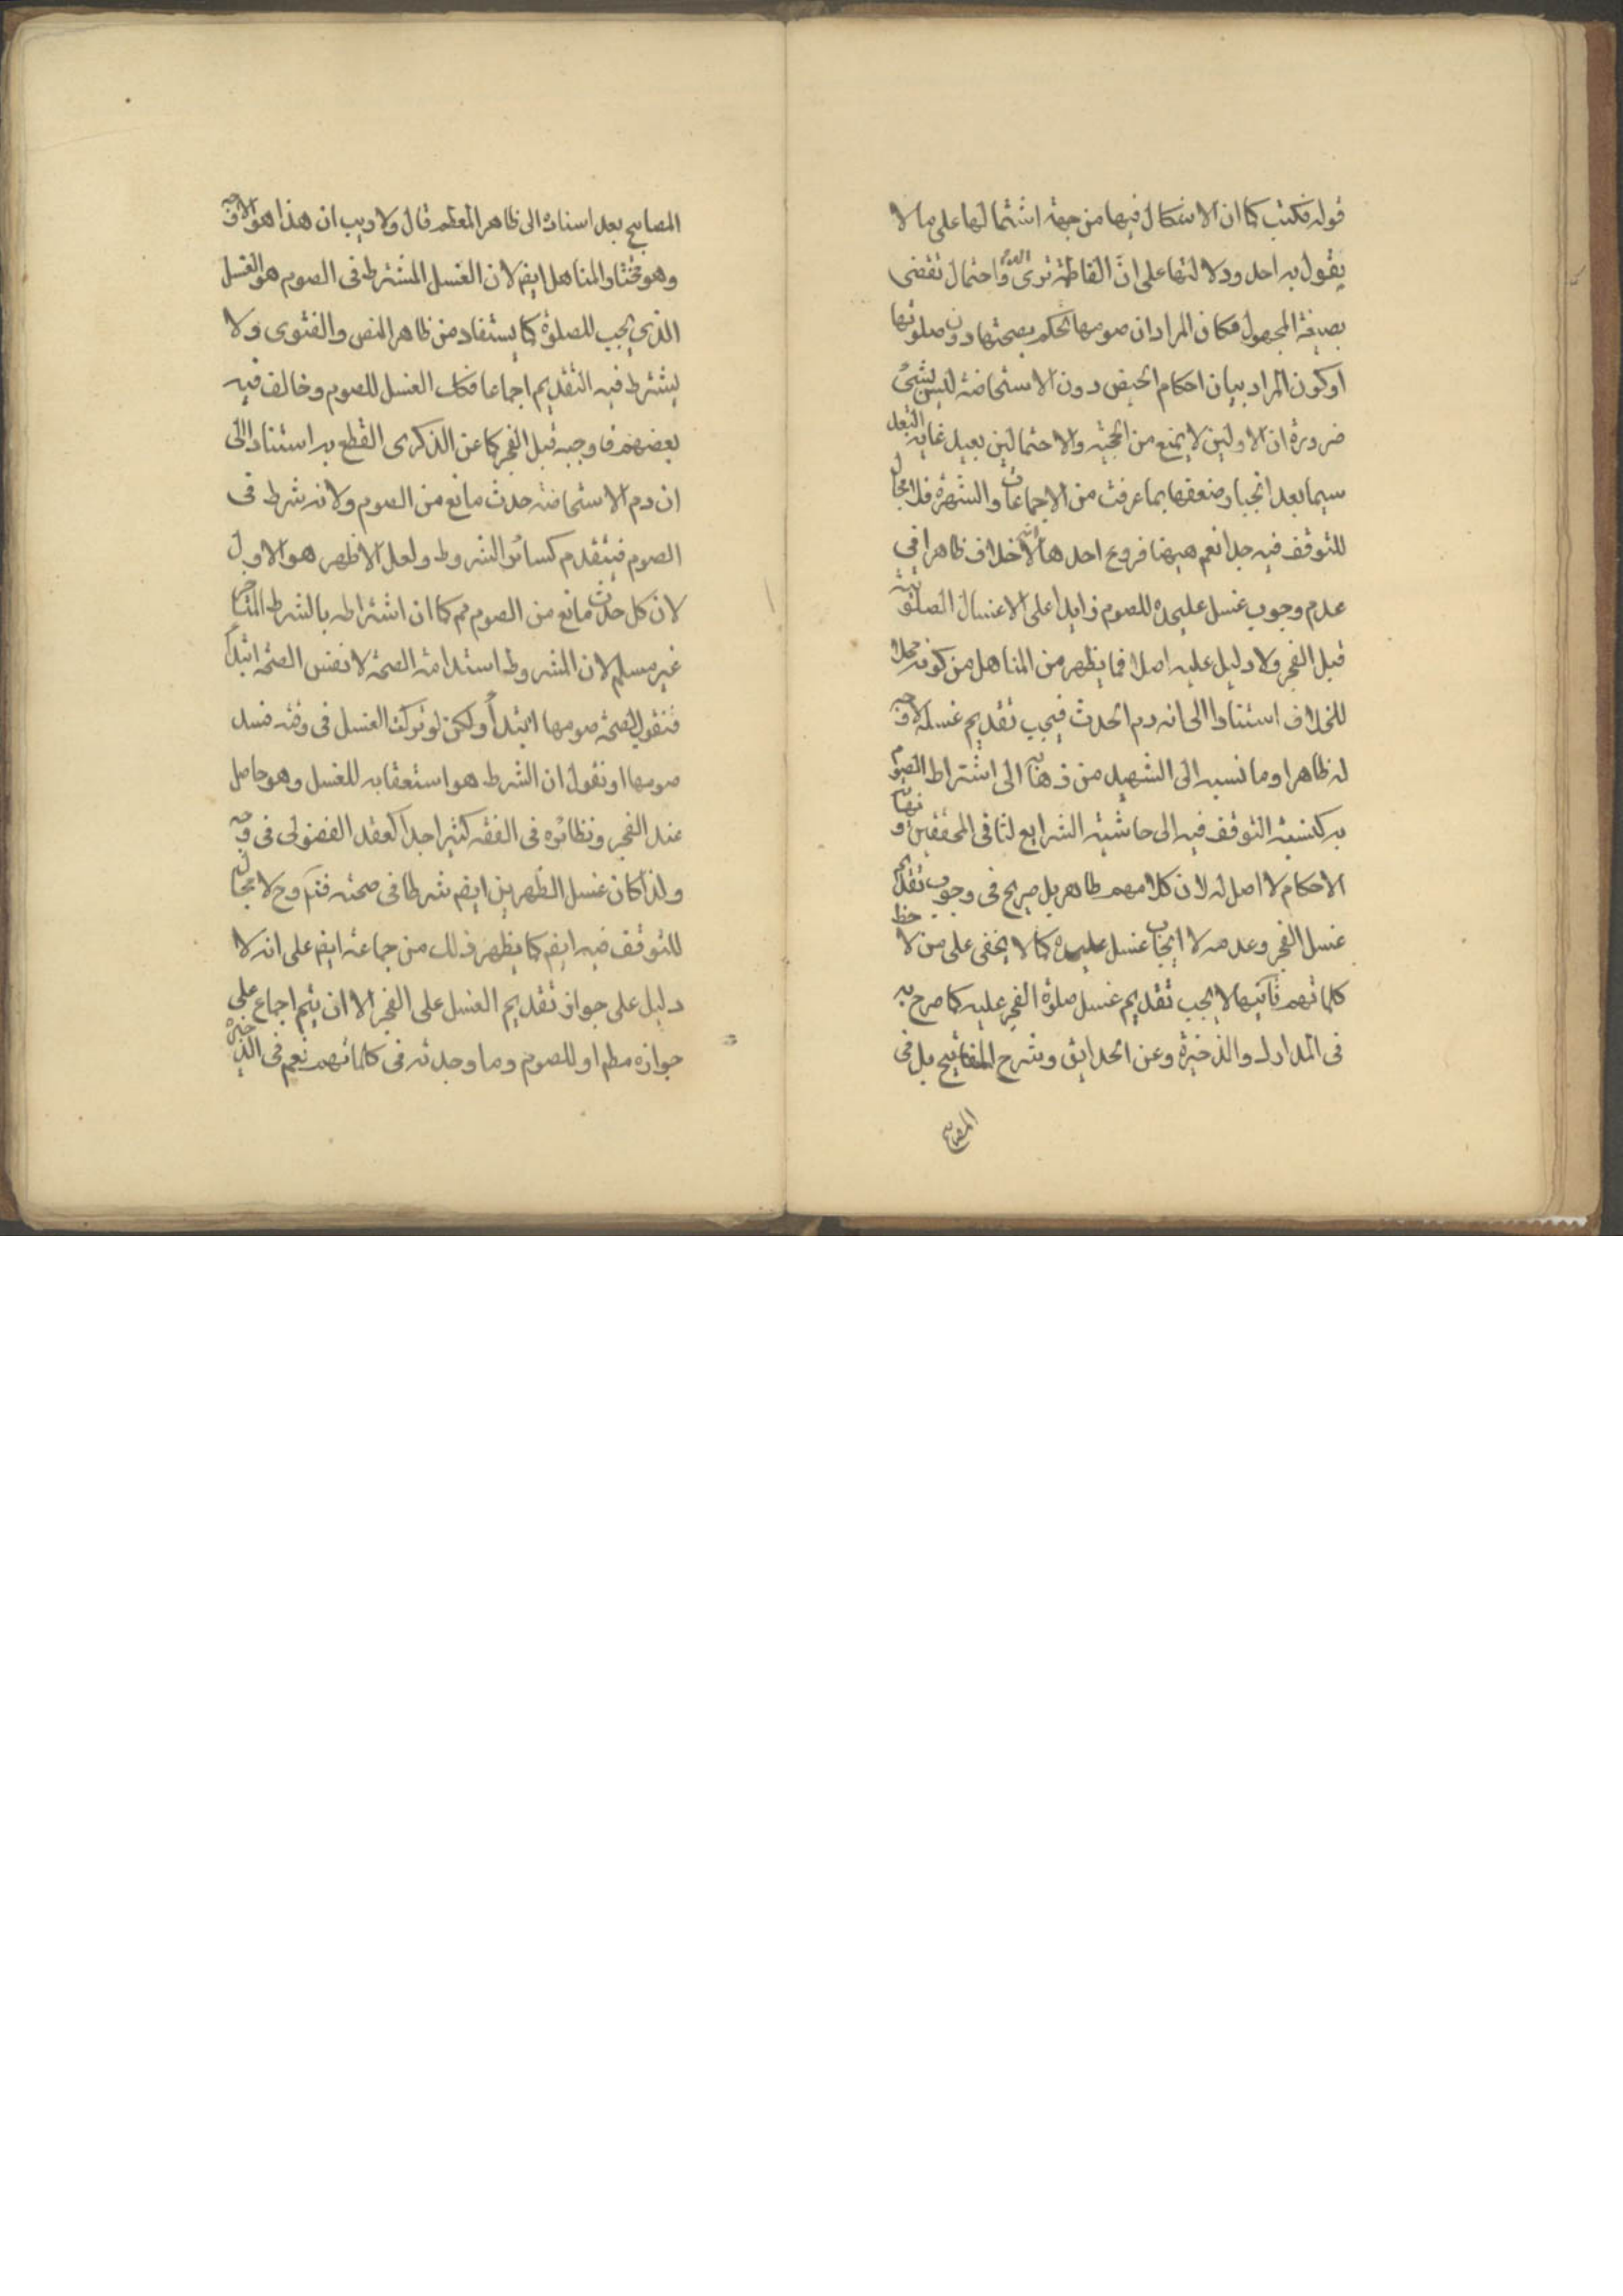 قوله فكتب كما ان الاشكال فيها من جهة اشتمالها على ما لا
يقول به احد ودلالتها على انّ الفاطمة ترى الدم واحتمال تقضى
بصيغة المجهول فكان المراد ان صومها يحكم بصحتها دون صلوتها
او كون المراد بيان احكام الحيض دون الاستحاضة ليس بشئ
ضرورة ان الاولين لا يمنع من الحجية والاحتمالين بعيد غاية البعد
سيما بعد انجبار ضعفها بما عرفت من الاجماعات والشهرة فلا مجال
للتوقف فيه جدا نعم هيهنا فروع احدها انه لا خلاف ظاهرا في
عدم وجوب غسل عليحدة للصوم زايدا على الاغسال الصلوتية
قبل الفجر ولا دليل عليه اصلا فما يظهر من المناهل من كونه محلا
للخلاف استنادا الى انه دم الحدث فيجب تقديم غسله لا وجه
له ظاهرا وما نسبه الى الشهيد من ذهابه الى اشتراط الصوم
به كنسبة التوقف فيه الى حاشية الشرايع لثاني المحققين و نهاية
الاحكام لا اصل له لان كلامهم ظاهر بل صريح في وجوب تقديم
غسل الفجر وعدمه لا ايجاب غسل عليحدة كما لا يخفى على من لاحظ
كلماتهم ثانيها لا يجب تقديم غسل صلوة الفجر عليه كما صرح به
في المدارك والذخيرة وعن الحدايق وشرح المفاتيح بل في
المصابيح
المصابيح بعد اسناده الى ظاهر المعظم قال ولا ريب ان هذا هو الاوجه
وهو مختار المناهل ايضم لان الغسل المشترط في الصوم هو الغسل
الذي يجب للصلوة كما يستفاد من ظاهر النص والفتوى ولا
يشترط فيه التقديم اجماعا فكذا الغسل للصوم وخالف فيه
بعضهم فاوجبه قبل الفجر كما عن الذكرى القطع به استنادا الى
ان دم الاستحاضة حدث مانع من الصوم ولانه شرط في
الصوم فيتقدم كسائر الشروط ولعل الاظهر هو الاول
لان كل حدث مانع من الصوم مم كما ان اشتراطه بالشرط المتاخر
غير مسلم لان المشروط استدامة الصحة لا نفس الصحة ابتداء
فنقول لصحة صومها ابتداء ولكن لو تركت الغسل في وقته فسد
صومها او نقول ان الشرط هو استعقابه للغسل وهو حاصل
عند الفجر ونظائره في الفقه كثير اجدا كعقد الفضولى في وجه
ولذا كان غسل الظهرين ايضم شرطا في صحته فتم وح لا مجال
للتوقف فيه ايضم كما يظهر ذلك من جماعة ايضم على انه لا
دليل على جواز تقديم الغسل على الفجر الا ان يتم اجماع على
جوازه مطم او للصوم وما وجدته في كلماتهم نعم في الذخيرة